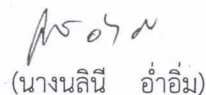 (นางนลินี อ่ำอิ่ม)